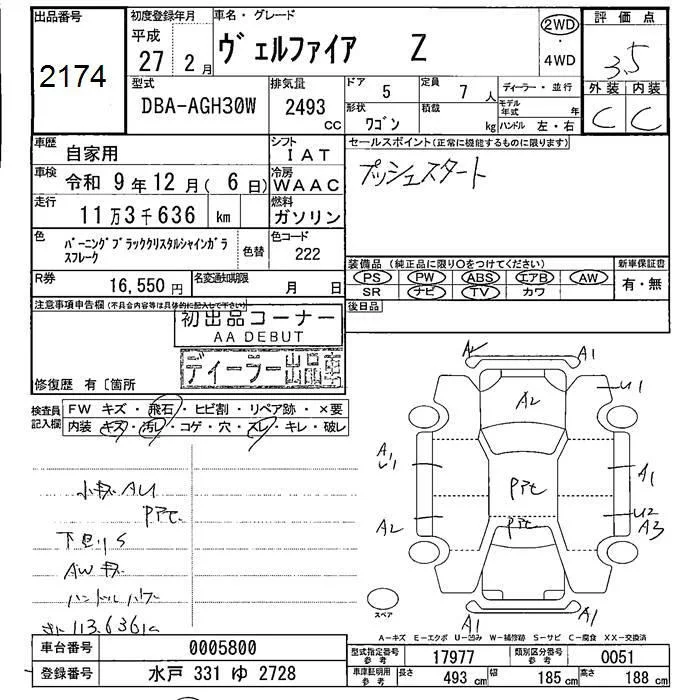 出品番号
2174
初度登録年月
平成
27年 2月
車名・グレード
ヴェルファイア Z
2WD
・
4WD
評価点
3.5
外装 内装
C C
型式
DBA-AGH30W
排気量
2493
CC
ドア 5
定員 7人
形状
ワゴン
積載
kg
ディーラー・並行
モデル年式
年
ハンドル 左・右
車歴
自家用
シフト
IAT
セールスポイント(正常に機能するものに限ります)
プッシュスタート
車検
令和 9年12月( 6日)
冷房
WAAC
走行
11万3千636 km
燃料
ガソリン
色
バーニングブラッククリスタルシャインガラ
スフレーク
色替
色コード
222
R券
16,550円
名変通知期限
月 日
装備品 (純正品に限り○をつけてください)
PS PW ABS エアB AW
SR ナビ TV カワ
新車保証書
有・無
後日品
注意事項申告欄(不具合内容等は具体的に記入して下さい)
初出品コーナー
AA DEBUT
ディーラー出品車
修復歴 有〔箇所
検査員
記入欄
FW キズ・飛石・ヒビ割・リペア跡・×要
内装 キズ・汚レ・コゲ・穴・スレ・キレ・破レ
小キズ AU
Pアt
下廻りS
AWキズ
ハンドル
113636k
A1
A2
U1
A1
U1
A2
Pアt
Pアt
A1
U2
A3
A1
A1
スペア
A-キズ E-エクボ U-凹み W-補修跡 S-サビ C-腐食 XX-交換済
車台番号
0005800
登録番号
水戸 331 ゆ 2728
型式指定番号
参考
17977
類別区分番号
参考
0051
車庫証明用
参考
長さ 493 cm
幅 185 cm
高さ 188 cm